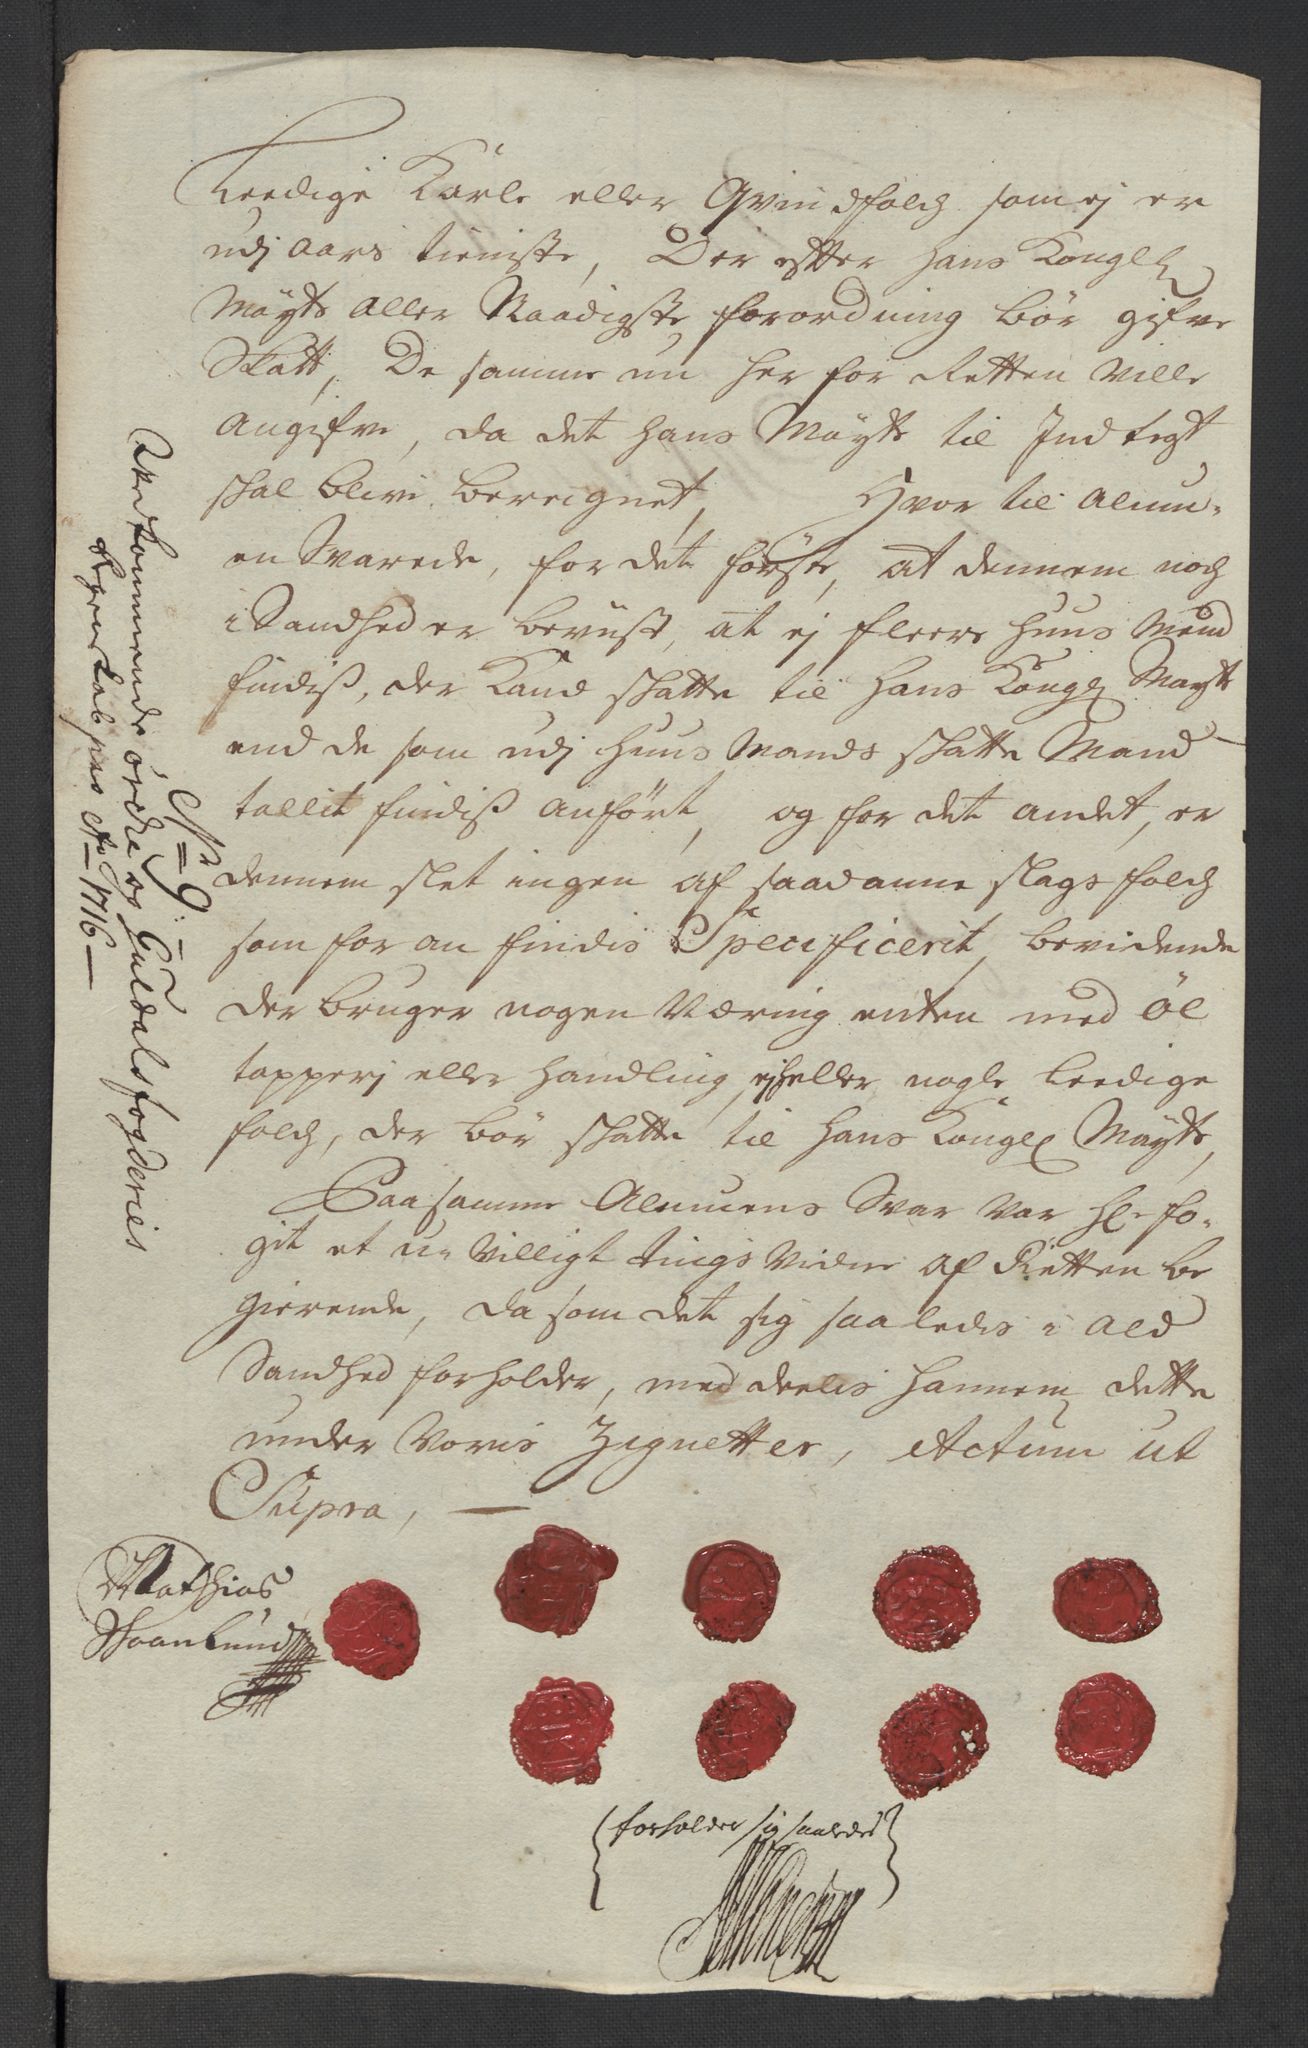 Leedige Karle eller Qvindfolch som ej er
udj aars tieniste, Der efter hans Kongl
Mayts aller Naadigste forordning bör gifve
Skatt, De samme nu her for Retten ville
angifve, da det hans Mayts til Indtegt
skal blive beregnet, Hvor til Almu-
en Svarede, for det förste, at dennem noch
i Sandhed er bevust, at ej fleere huus Mend
findiß, der Kand skatte til hans Kongl Mayts
end de som udj huus Mands skatte Mand
tallit findiß anfört, og for det andet, er
dennem slet ingen af saadanne slags folch
som for an findis Specificerit, bevidende
der bruger nogen Næring enten med öl
tapperj eller handling, ej heller nogle leedige
folch, der bör skatte til hans Kongl Mayts,
Paa samme Almuens Svar var Hr fo-
git et u-villigt tings vidne af Retten be
gierende, da som det sig saaledis i ald
Sandhed forholder, med deelis hannem dette
under Voris Zignetter, Actum ut
Supra,
Mathias
Skaanlund
forholder sig saaledes
No 9
Vedkommende örche og Guldals fogderies
Regnskab pro Ao 1716